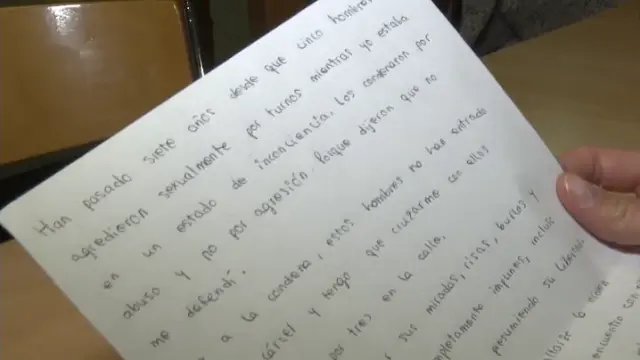 Han pasado siete años desde que cinco hombres
agredieron sexualmente por turnos mientras yo estaba
en un estado de inconciencia. Los condenaron por
abuso y no por agresión. Porque dijeron que no
me defendí.
a la condena, estos hombres no han entrado
cárcel y tengo que cruzarme con ellos
por tres en la calle.
sus miradas, risas, burlas y
completamente impunes, incluso
presumiendo su libertad
la misma